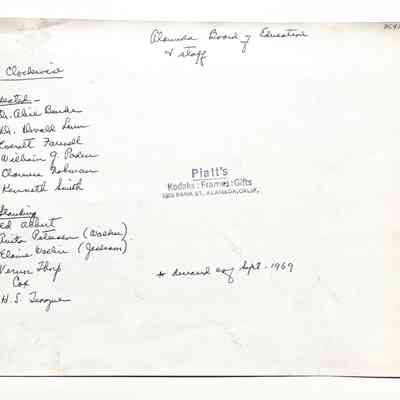 Alameda Board of Education
& staff
Clockwise
Seated -
Dr. Alice
Dr. Donald
Everett Farwell
William G. Paden
Clarence
Kenneth Smith
Standing
Ed Albert
Anita Petersen (Walker)
Elaine
Vernon Thorp
Cox
H.S. Teague
Piatt's
Kodaks:Frames:Gifts
PARK ST. ALAMEDA, CALIF.
* deceased as of Sept. 1969